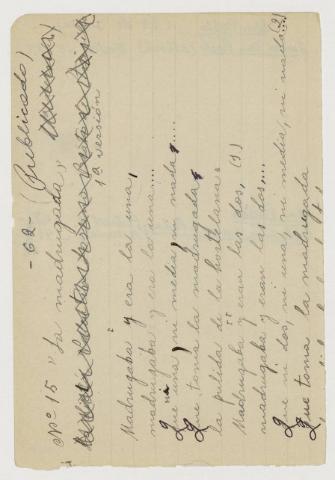 -62- (Publicado)
Nº 15 "La madrugada"
1ª versión
Madrugaba y era la una,
madrugaba y era la una....
Que ni una, ni media, ni nada,....
Que toma la madrugada,
la pulida de la hortelana.
Madrugaba y eran las dos, (1)
madrugaba y eran las dos,...
Que ni dos, ni una, ni media, ni nada (2)...
Que toma la madrugada